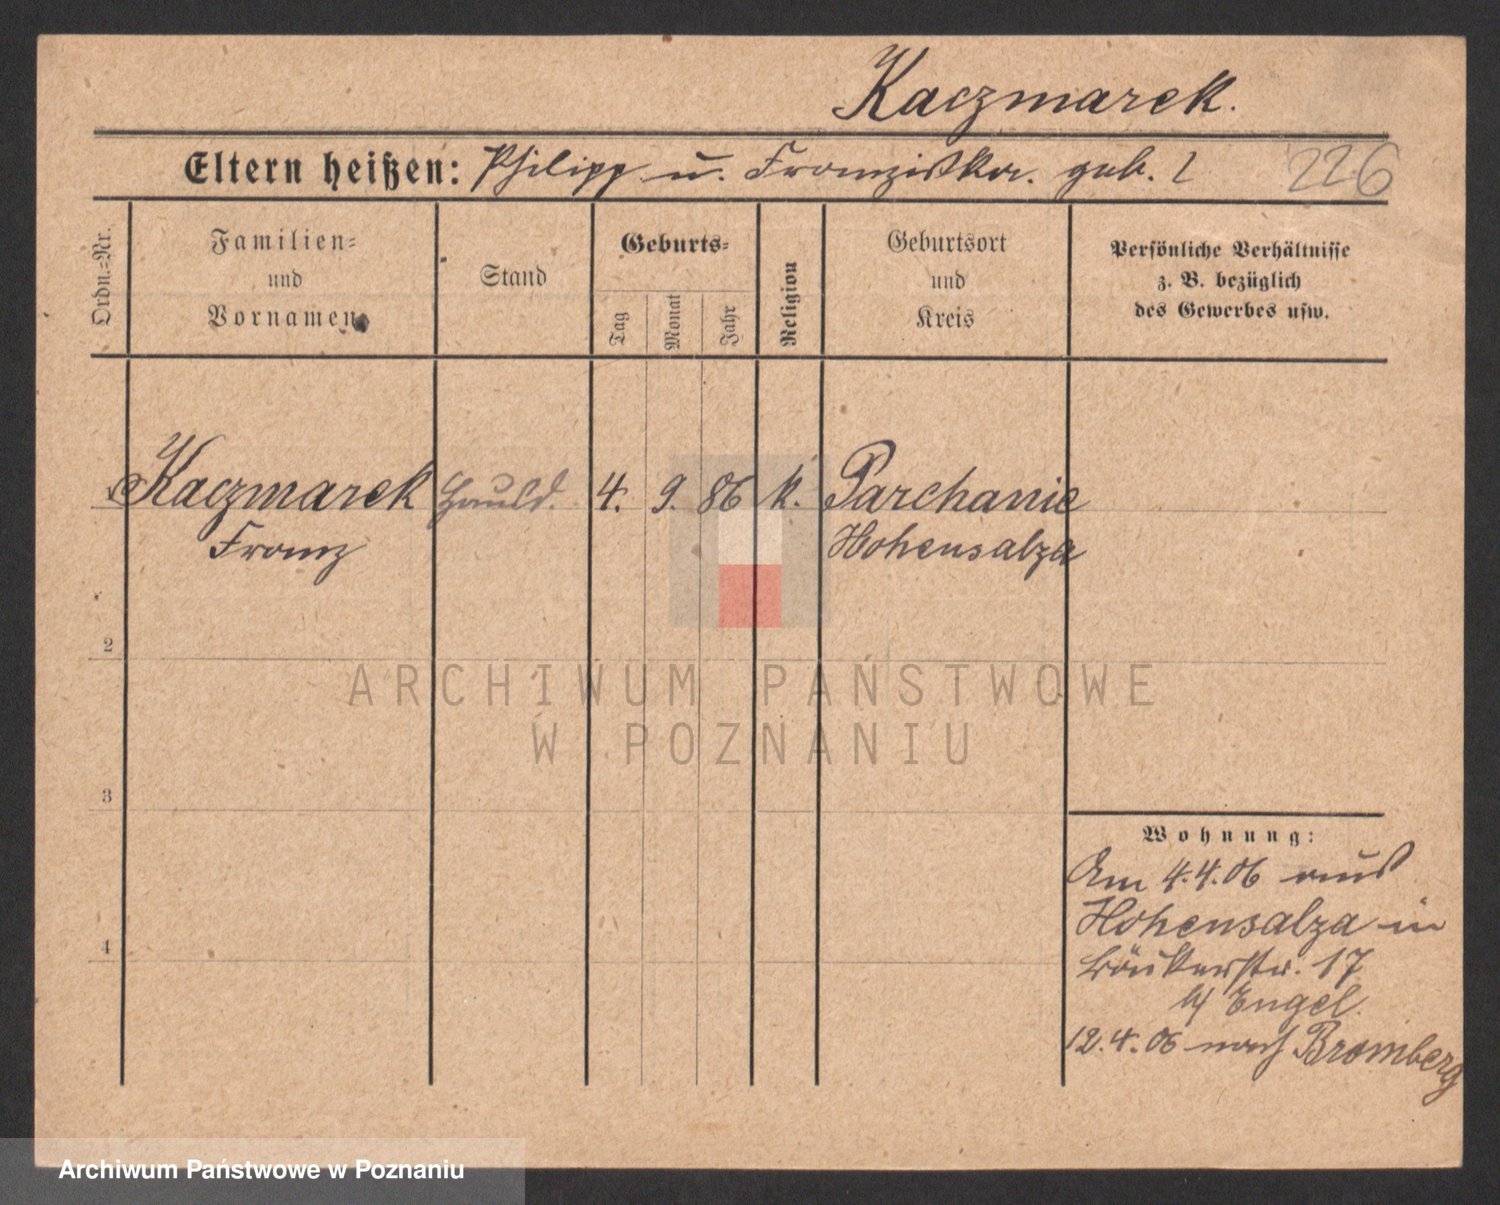 Kaczmarek.
Eltern heißen: Philipp u. Franziska. geb. ?
226
Ordn.-Nr.
Familien- und Vornamen
Stand
Geburts-
Tag
Monat
Jahr
Religion
Geburtsort und Kreis
Persönliche Verhältnisse
z. B. bezüglich
des Gewerbes usw.
Kaczmarek 4. 9. 86 k. Parchanie
Franz Hohensalza
2
3
4
Wohnung:
Am 4.4.06 aus
Hohensalza in
17
b/ Engel.
12.4.06 nach Bromberg
ARCHIWUM PAŃSTWOWE
W POZNANIU
Archiwum Państwowe w Poznaniu